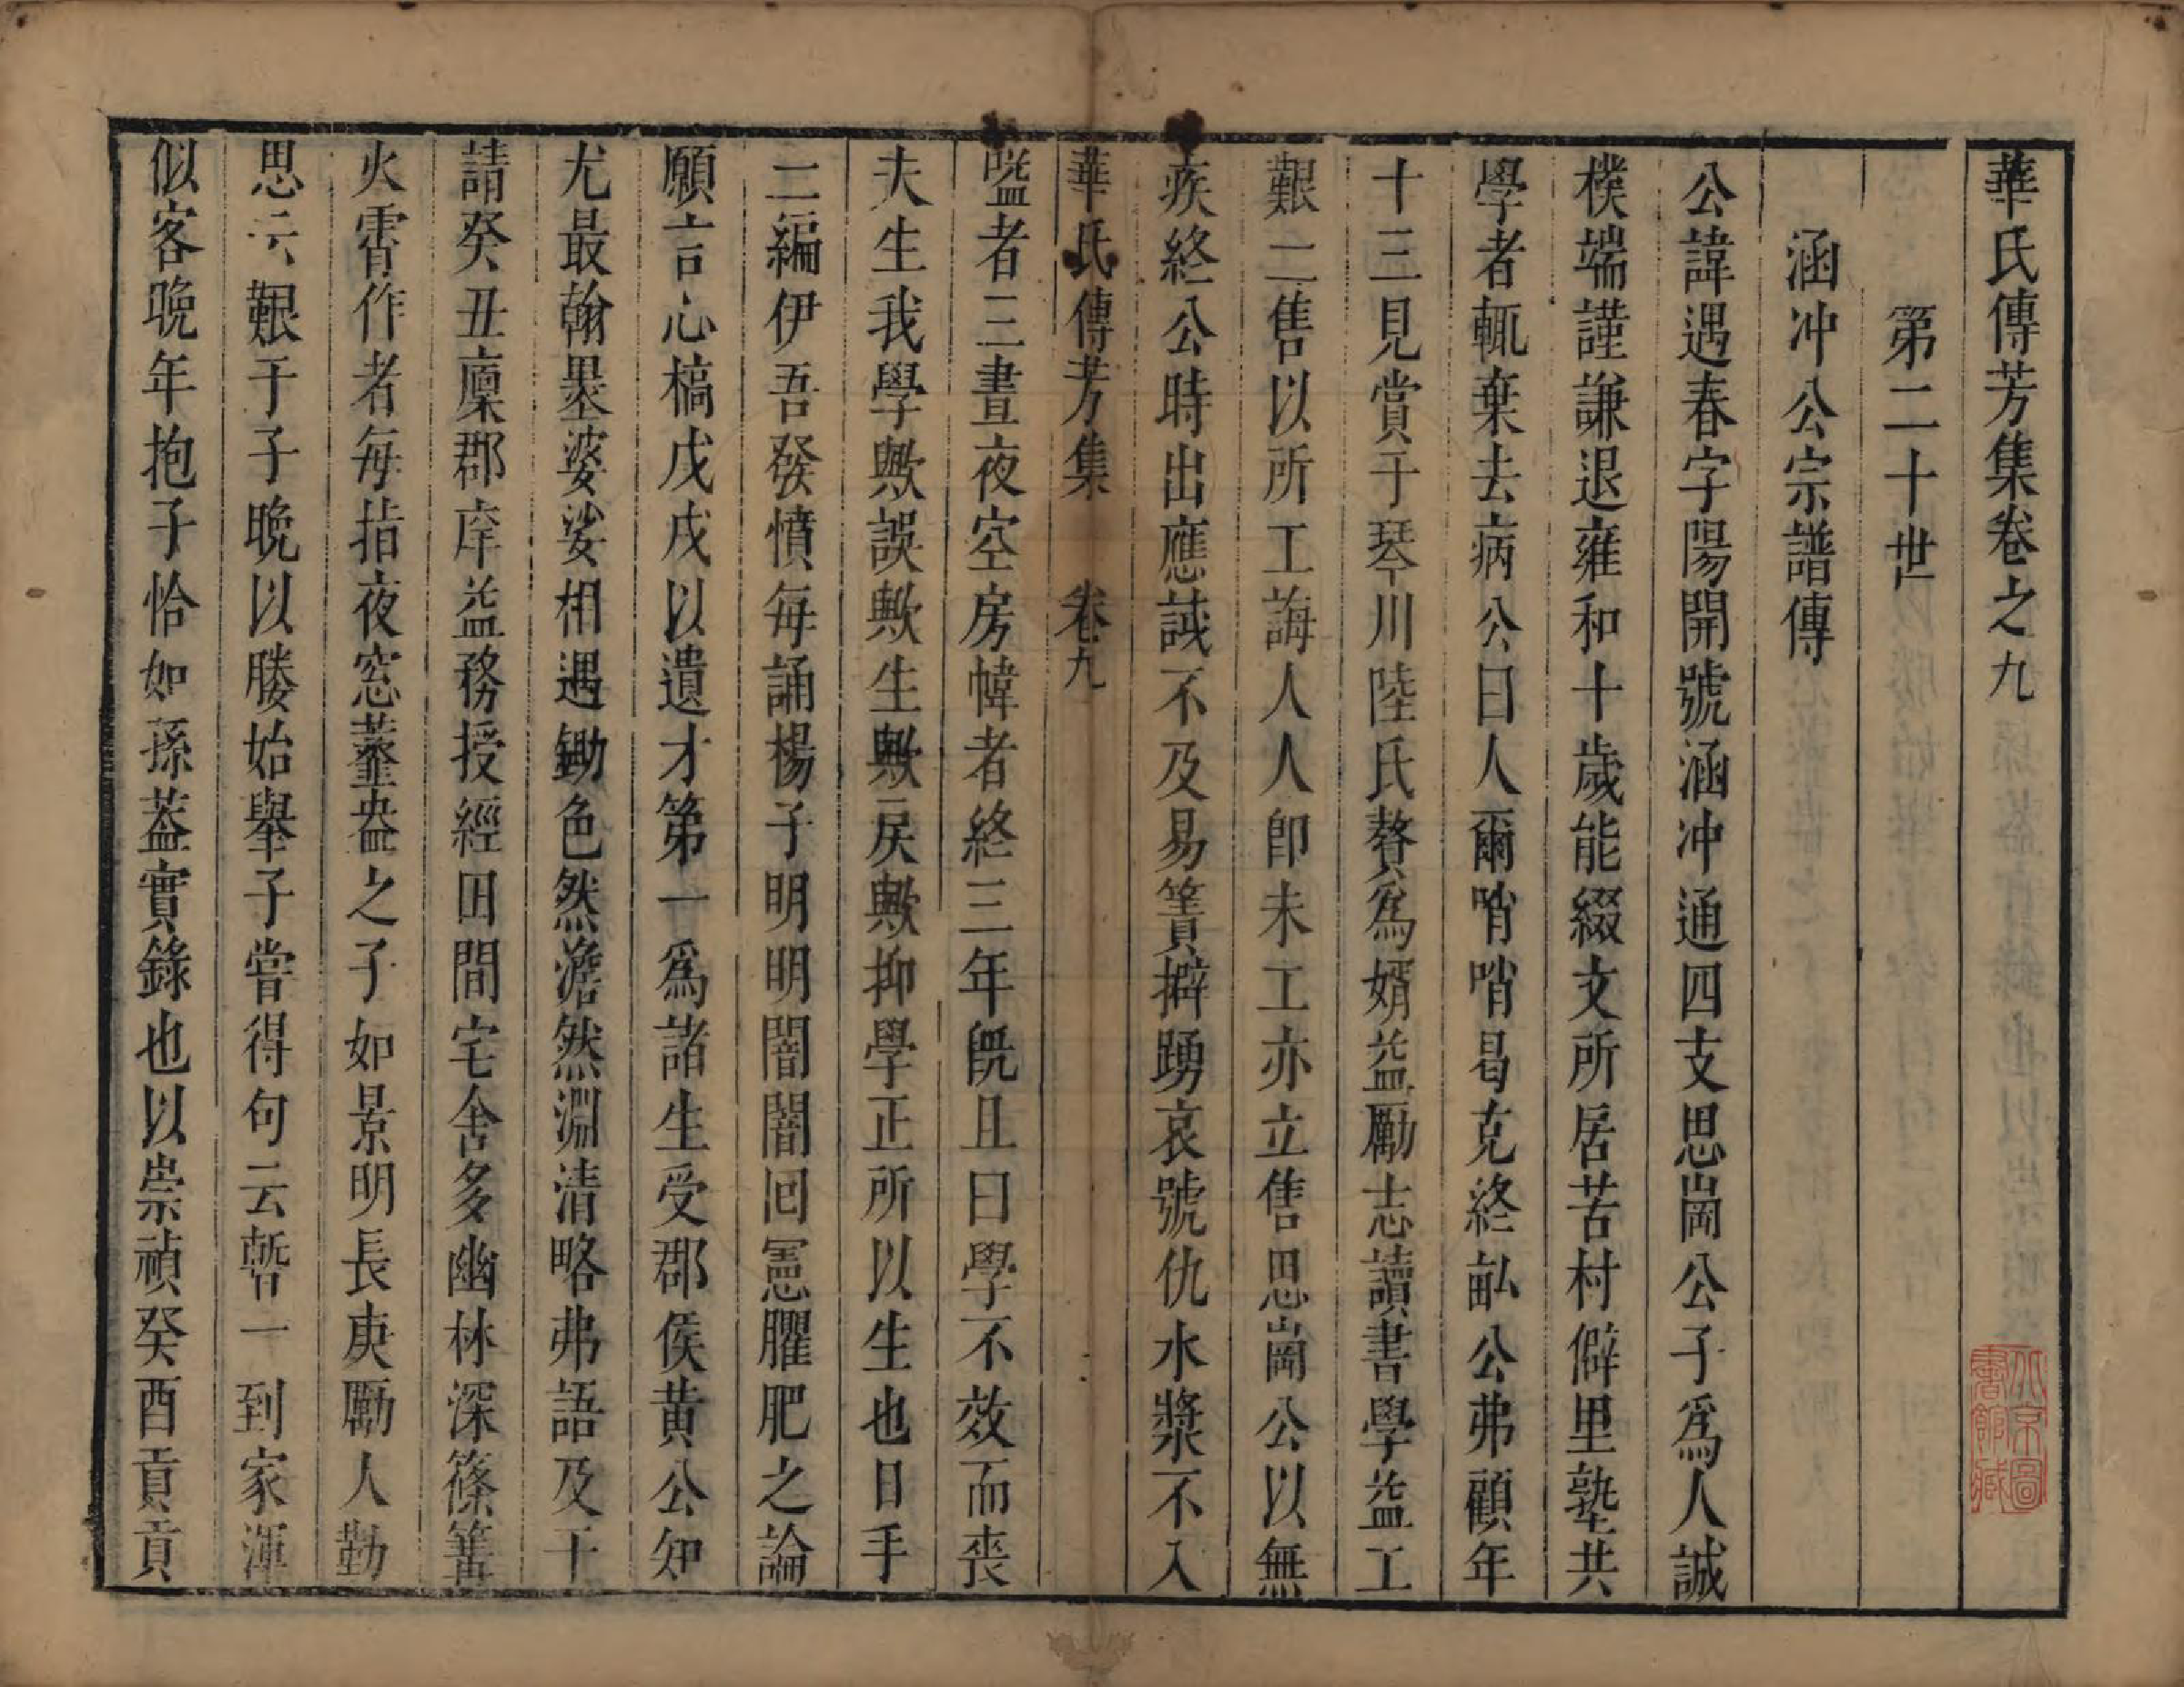 華氏傳芳集卷之九
第二十世
涵冲公宗譜傳
公諱遇春字陽開號涵冲通四支思崗公子爲人誠
樸端謹謙退雍和十歲能綴文所居苦村僻里塾共
學者輒棄去病公曰人爾哨哨曷克終畝公弗顧年
十三見賞于琴川陸氏贅爲婿益勵志讀書學益工
艱二售以所工誨人人卽未工亦立售思崗公以無
疾終公時出應誠不及易簀擗踴哀號仇水漿不入
華氏傳芳集 卷九
嗌者三晝夜空房幃者終三年旣且曰學不效而喪
夫生我學歟誤歟生歟戾歟抑學正所以生也日手
二編伊吾發憤每誦楊子明明闇闇回憲臞肥之論
願言心槁戊戌以遺才第一爲諸生受郡侯黄公知
尤最翰墨婆娑相遇鋤色然澹然淵清略弗語及干
請癸丑廪郡庠益務授經田間宅舍多幽林深篠篝
火霄作者每指夜窓虀盎之子如景明長庚勵人勤
思云艱于子晚以媵始舉子嘗得句云暫一到家渾
似客晚年抱子恰如孫蓋實錄也以崇禎癸酉貢貢
北京圖
書館藏